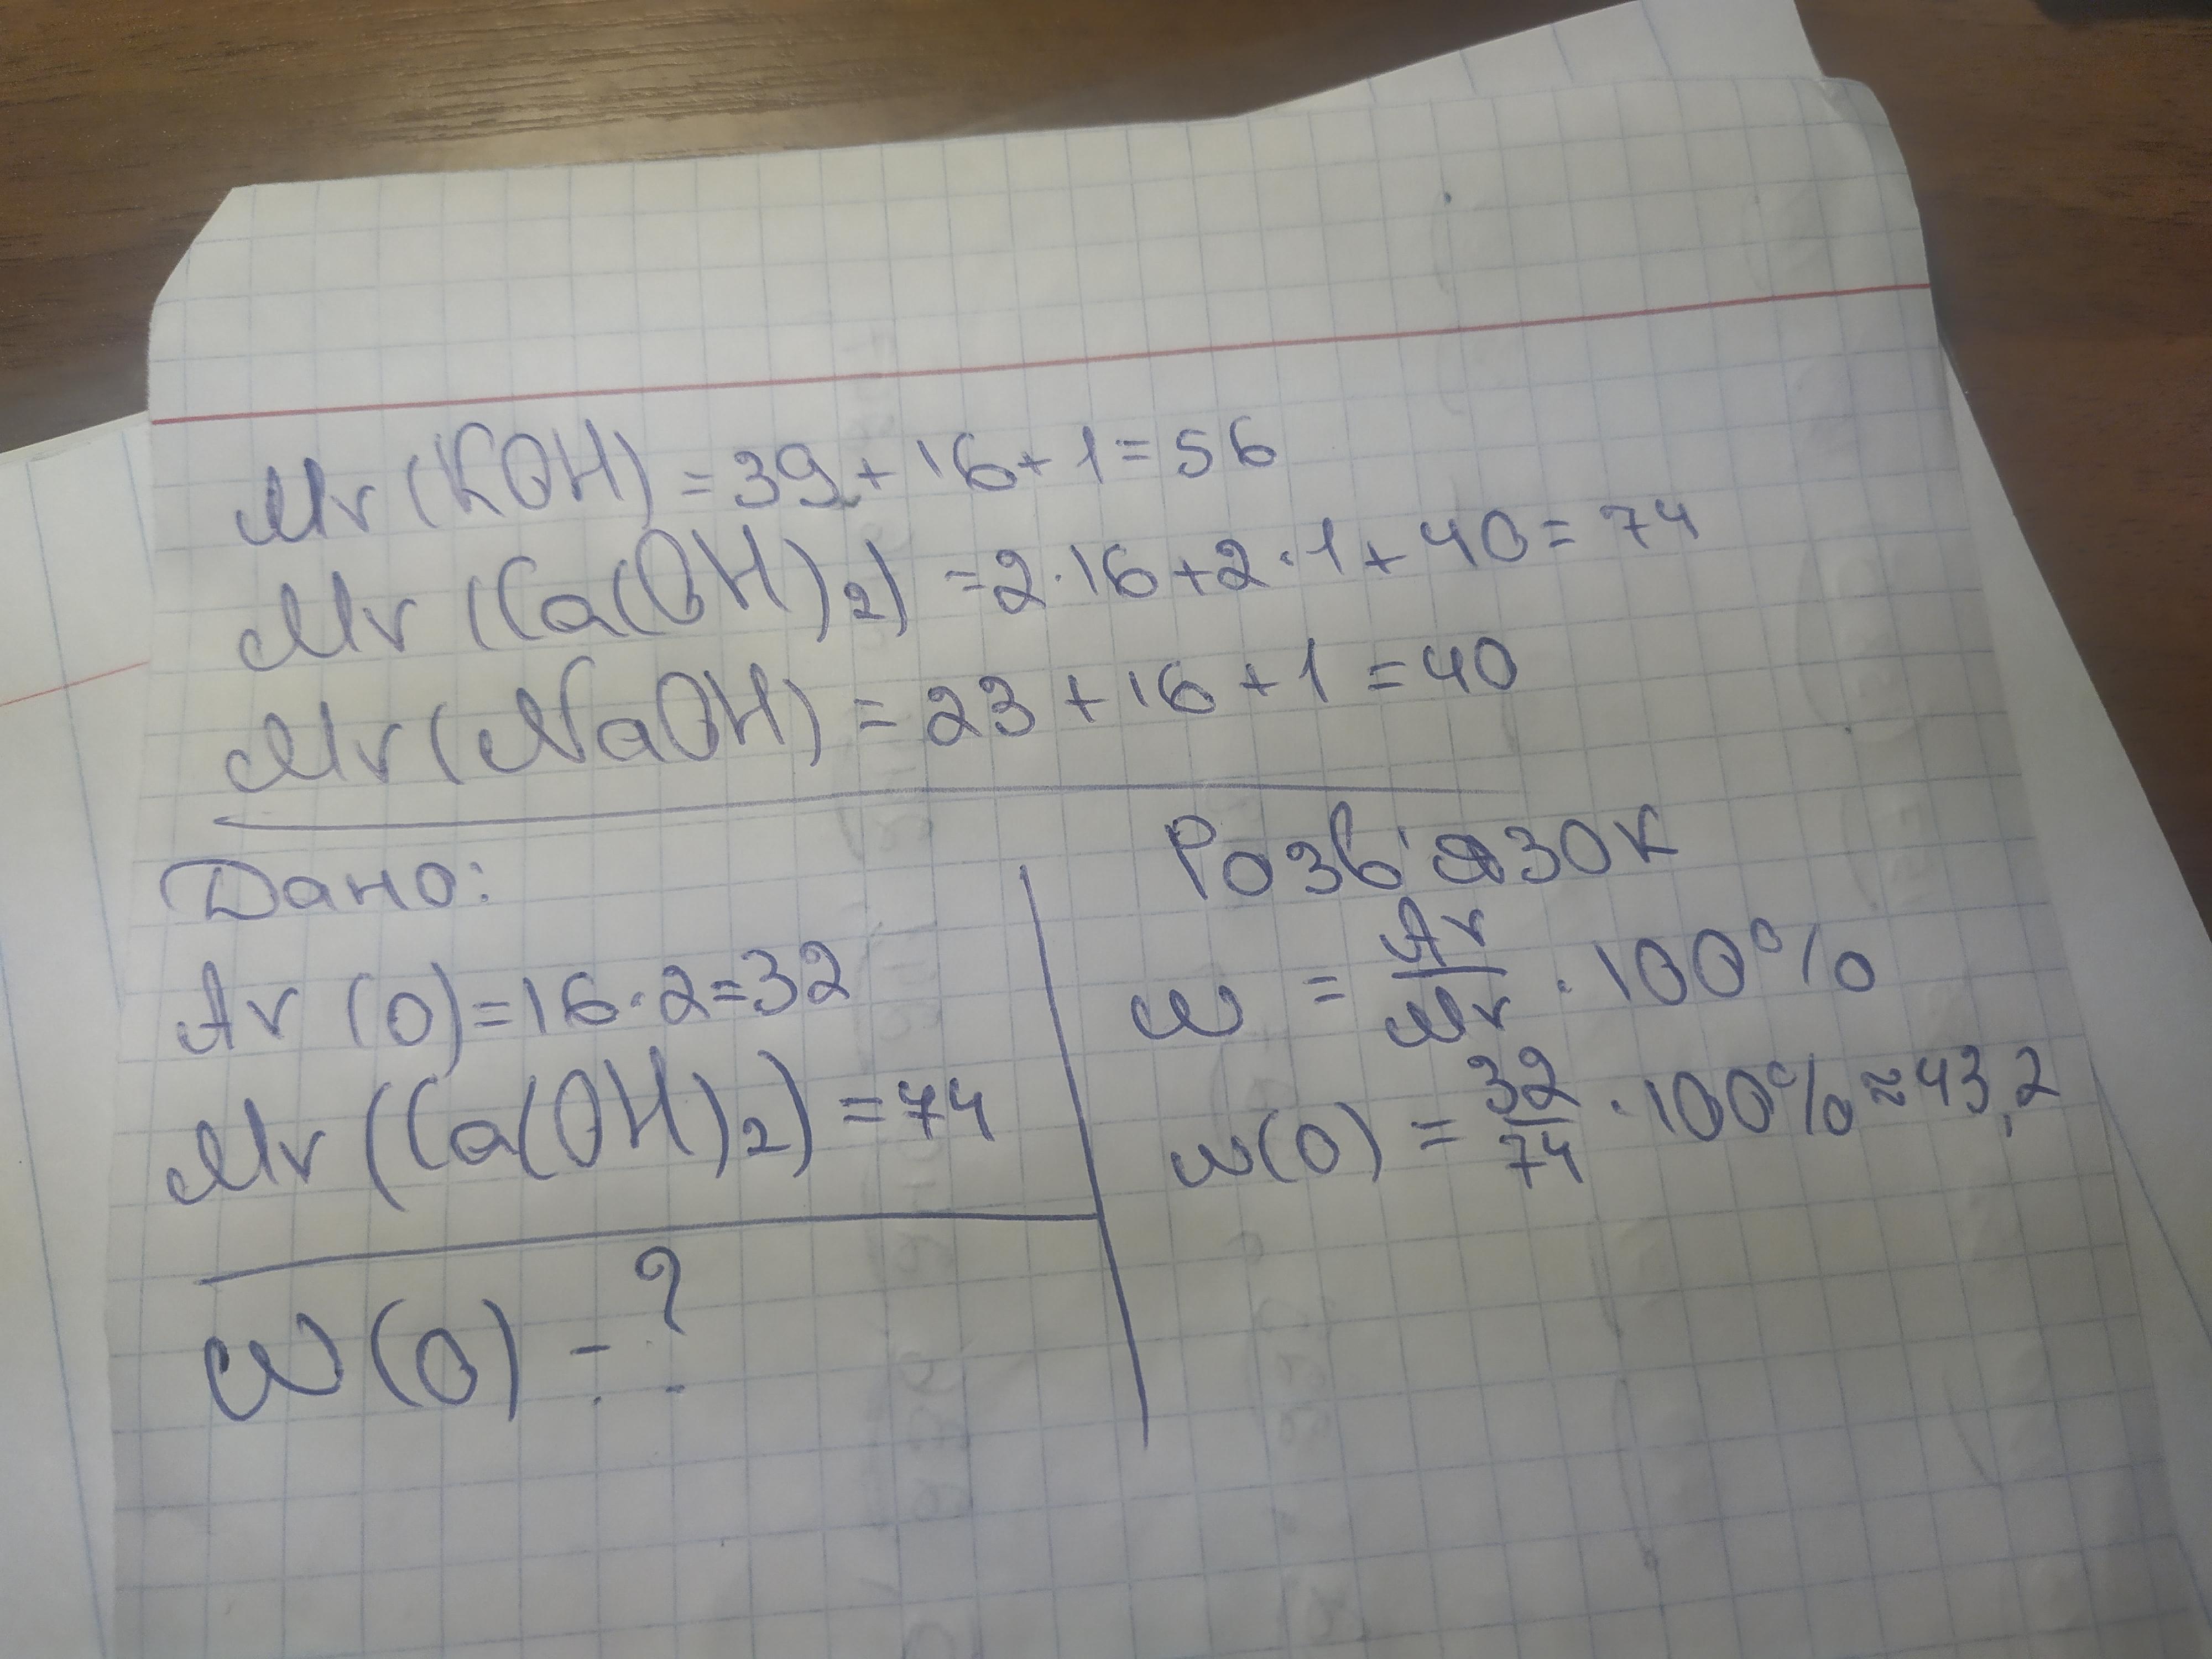 Mr (KOH) = 39 + 16 + 1 = 56
Mr (Ca(OH)2) = 2·16 + 2·1 + 40 = 74
Mr (NaOH) = 23 + 16 + 1 = 40
Дано:
Ar (O) = 16·2 = 32
Mr (Ca(OH)2) = 74
w(O) - ?
Розв'язок
w = Ar/Mr · 100%
w(O) = 32/74 · 100% ≈ 43,2